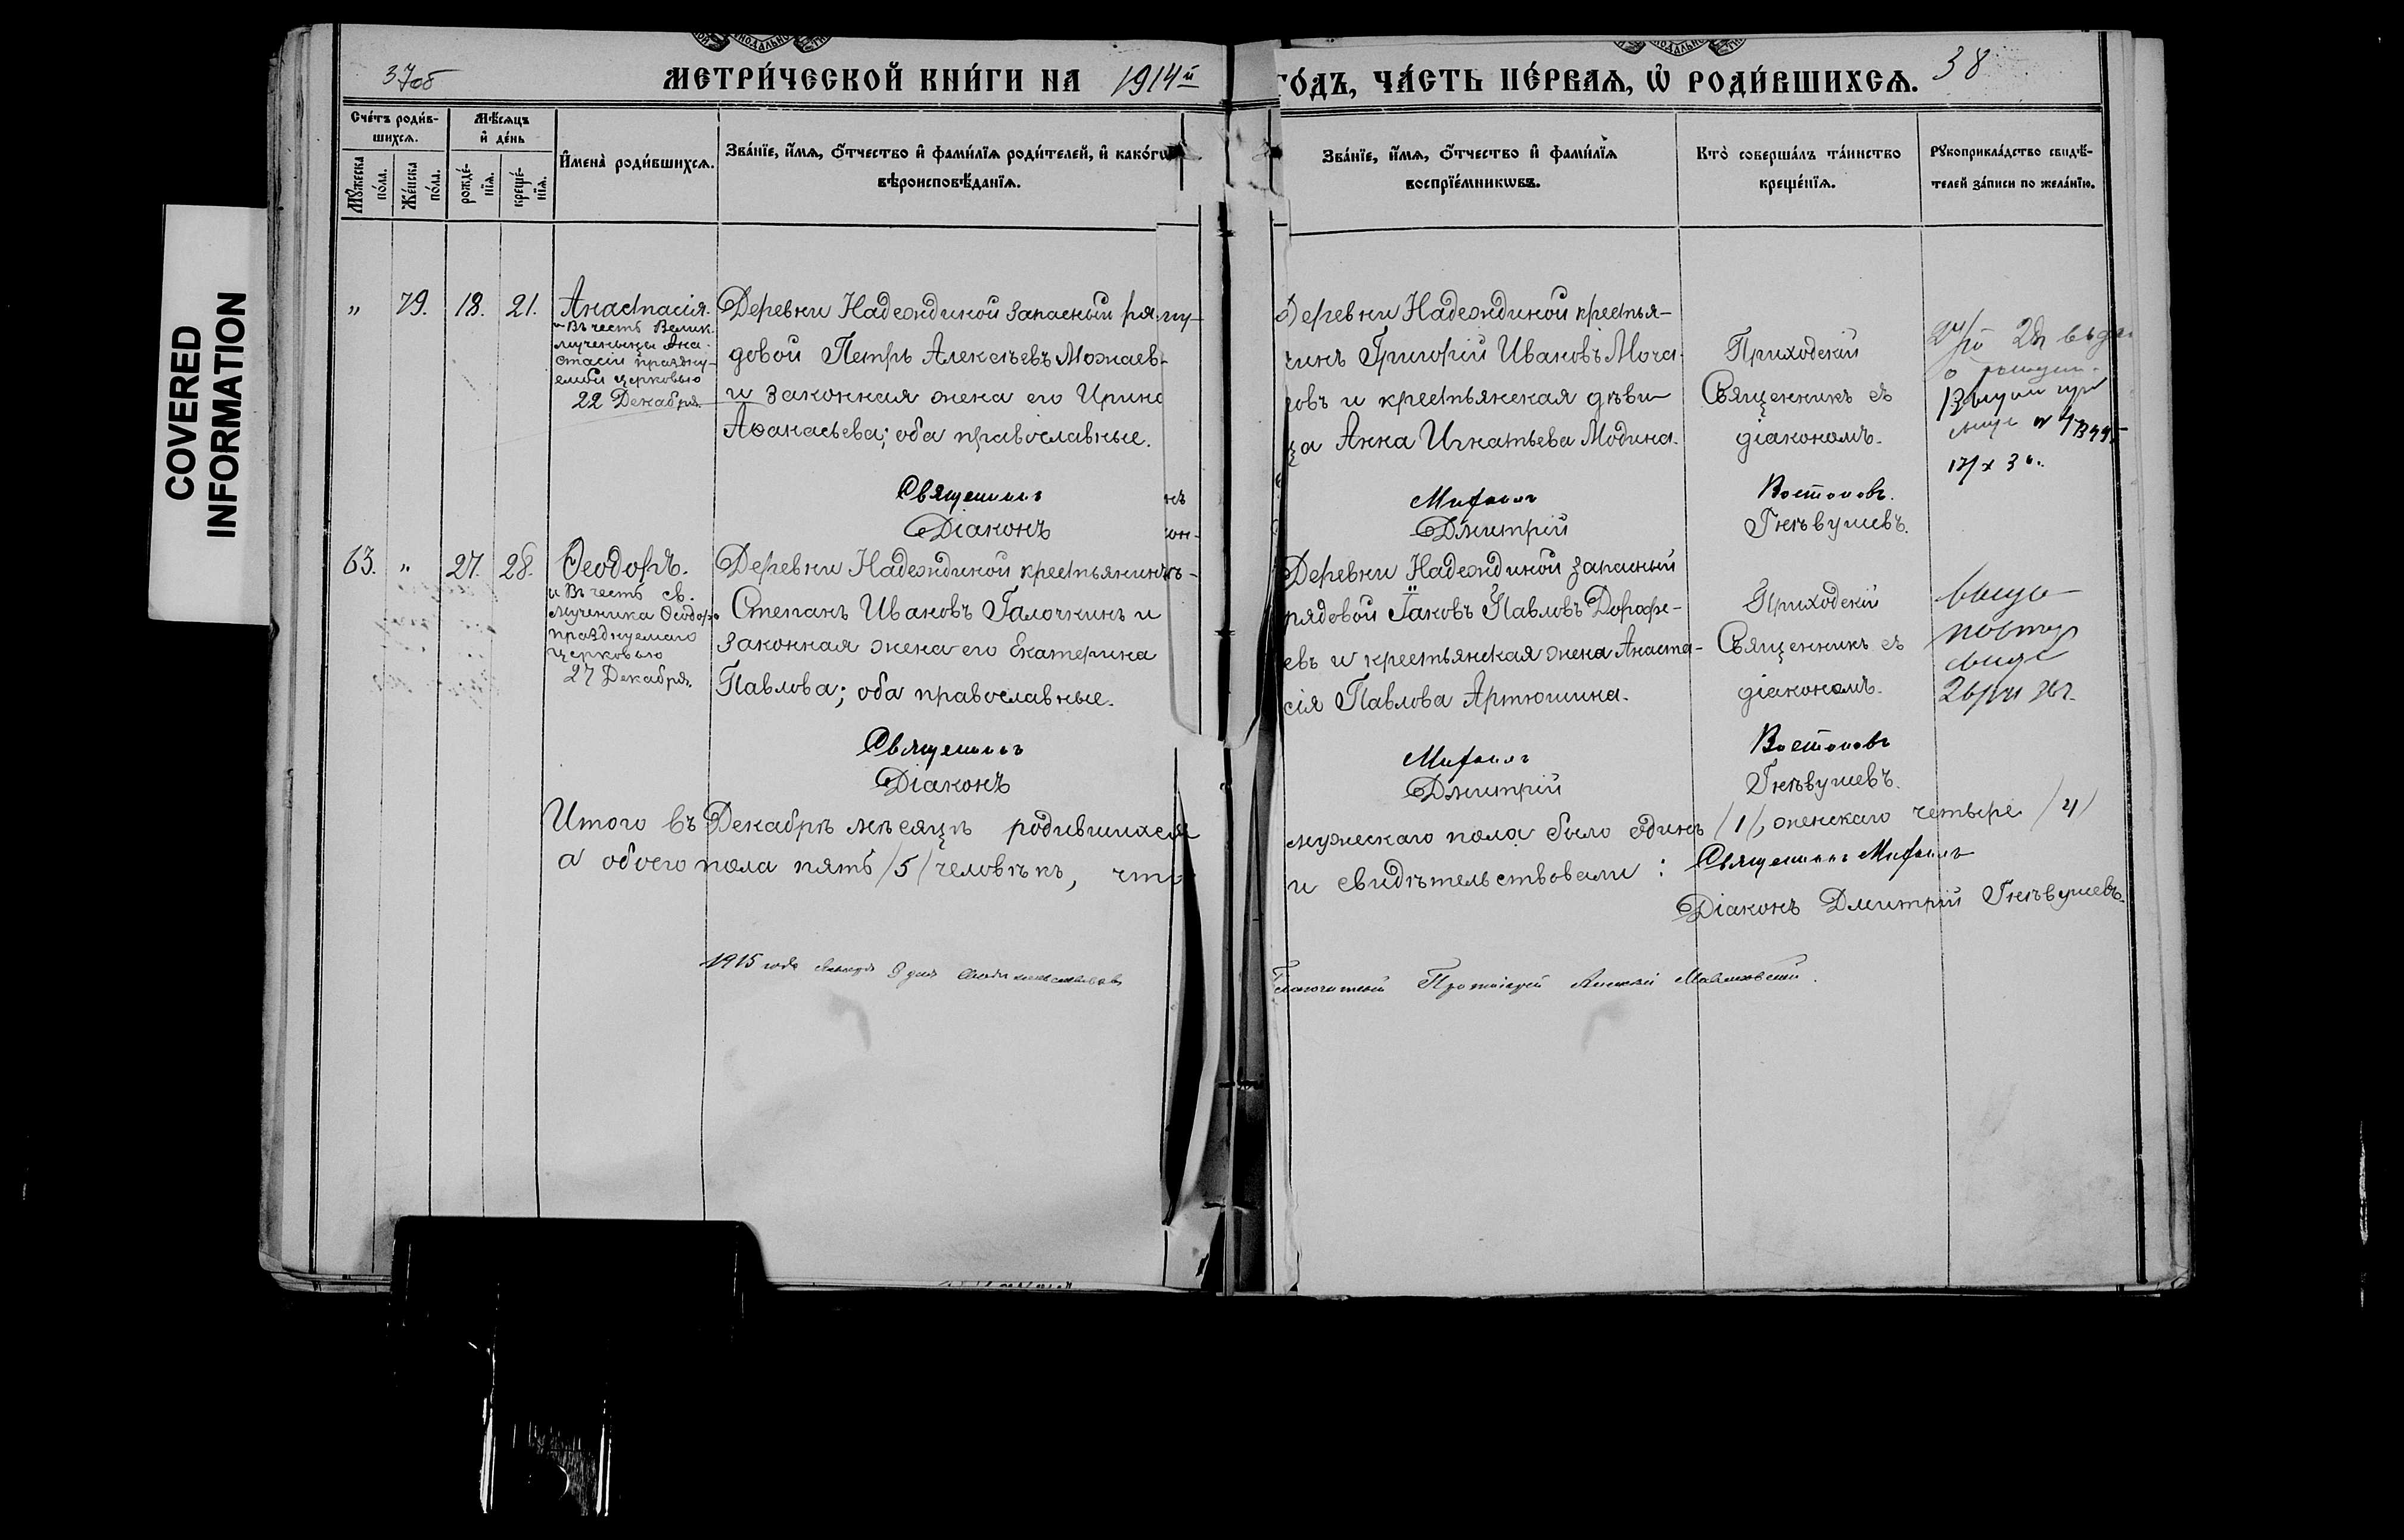 COVERED
INFORMATION
37об
МЕТРИ́ЧЕСКОЙ КНИ́ГИ НА 1914й
ГО́ДЪ, ЧА́СТЬ ПЕ́РВАѦ, Ѡ҆ РОДИ́ВШИХСѦ.
38
Сче́тъ роди́в-
шихсѧ.
Мꙋ́жеска
по́ла.
Же́нска
по́ла.
Мѣ́сяцъ
и҆ де́нь
рожде́-
нїѧ.
креще́-
нїѧ.
И҆мена̀ роди́вшихсѧ.
Зва́нїе, и҆́мѧ, ѻ҆́тчество и҆ фами́лїѧ роди́телей, и҆ како́гѡ
вѣроисповѣ́данїѧ.
Зва́нїе, и҆́мѧ, ѻ҆́тчество и҆ фами́лїѧ
воспрїе́мникѡвъ.
Кто̀ соверша́лъ та́инство
креще́нїѧ.
Рꙋкоприкла́дство свидѣ́-
телей за́писи по жела́нїю.
" 79. 18. 21.
Анастасія.
въ честь Велик.
мученицы Ана-
стасіи праздну-
емой церковью
22 Декабря.
Деревни Надеждиной запасный ря-
довой Петръ Алексѣевъ Можаев-
и законная жена его Ирина
Аѳанасьева; оба православные.
Деревни Надеждиной крестья-
нинъ Григорій Ивановъ Моча-
ровъ и крестьянская дѣви-
ца Анна Игнатьева Модина.
Приходскій
Священникъ съ
діакономъ.
Священникъ
Діаконъ
Михаилъ
Дмитрій
Востоковъ.
Гнѣвушевъ.
63. " 27. 28.
Ѳеодоръ.
и въ честь св.
мученика Ѳеодора
празднуемаго
церковью
27 Декабря.
Деревни Надеждиной крестьянинъ
Степанъ Ивановъ Галочкинъ и
законная жена его Екатерина
Павлова; оба православные.
Деревни Надеждиной запасный
рядовой Іаковъ Павловъ Дорофе-
евъ и крестьянская жена Анаста-
сія Павлова Артюшина.
Приходскій
Священникъ съ
діакономъ.
Священникъ
Діаконъ
Михаилъ
Дмитрій
Востоковъ
Гнѣвушевъ.
Итого въ Декабрѣ мѣсяцѣ родившихся
мужескаго пола было одинъ /1/, женскаго четыре /4/
а обоего пола пять /5/ человѣкъ, что
и свидѣтельствовали: Священникъ Михаилъ
Діаконъ Дмитрій Гнѣвушевъ.
1915 года Января 9 дня
Благочинный Протоіерей Алексій